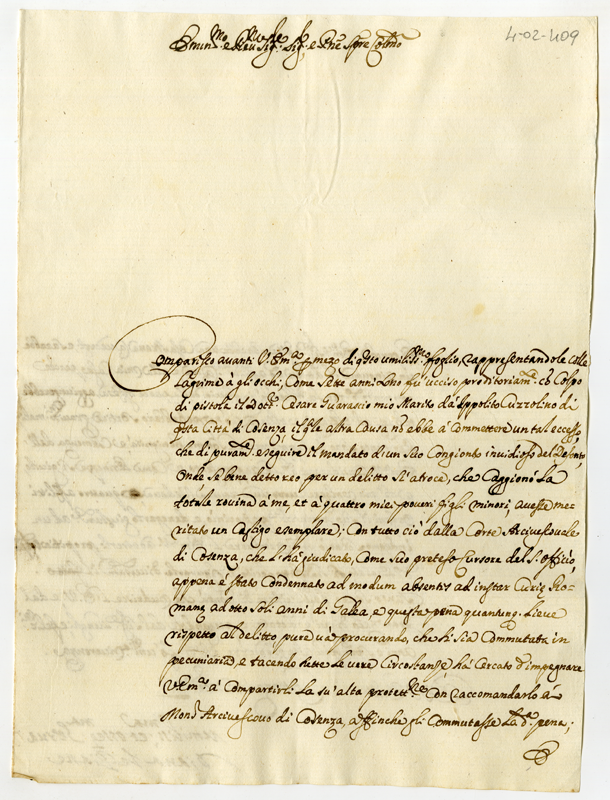 4-02-409
Emin.mo e Rev.mo Sig.r Sig.r e Pne Col.mo
Comparisco avanti V.Em.a p mezo di q.sto umiliss.mo foglio, rappresentandole colle
lagrime à gli occhi, Come sette anni sono fù ucciso proditoriam.te cõ Colpo
di pistola il Dott.r Cesare Guarascio mio Marito da Ippolito Cuzzolino di
q.sta Città di Cosenza, il q.le altra Causa nõ ebbe à Commettere un tal eccesso,
che di puram.te eseguire il mandato di un suo Congionto invidioso del Defonto,
Onde se bene detto reo per un delitto sì atroce, che Caggionò la
totale rovina à me, et à quattro miei poveri figli minori, avesse me-
ritato un Castigo esemplare; Con tutto ciò dalla Corte Arcivescovale
di Cosenza, che l'hà giudicato, Come suo preteso Cursore del S. Officio,
appena è stato Condennato ad modum absentis ad instar Curiæ Ro-
manæ ad otto soli anni di Galea, e queste pena quantunq. lieve
rispetto al delitto pure và procurando, che li sia Commutata in
pecuniaria, e tacendo tutte le vere Circostanze hà Cercato d'impegnare
V.Em.a à Compartirli la su' alta protett.ne Con raccomandarlo à
Mons.r Arcivescovo di Cosenza, affinche gli Commutasse la d.a pena;